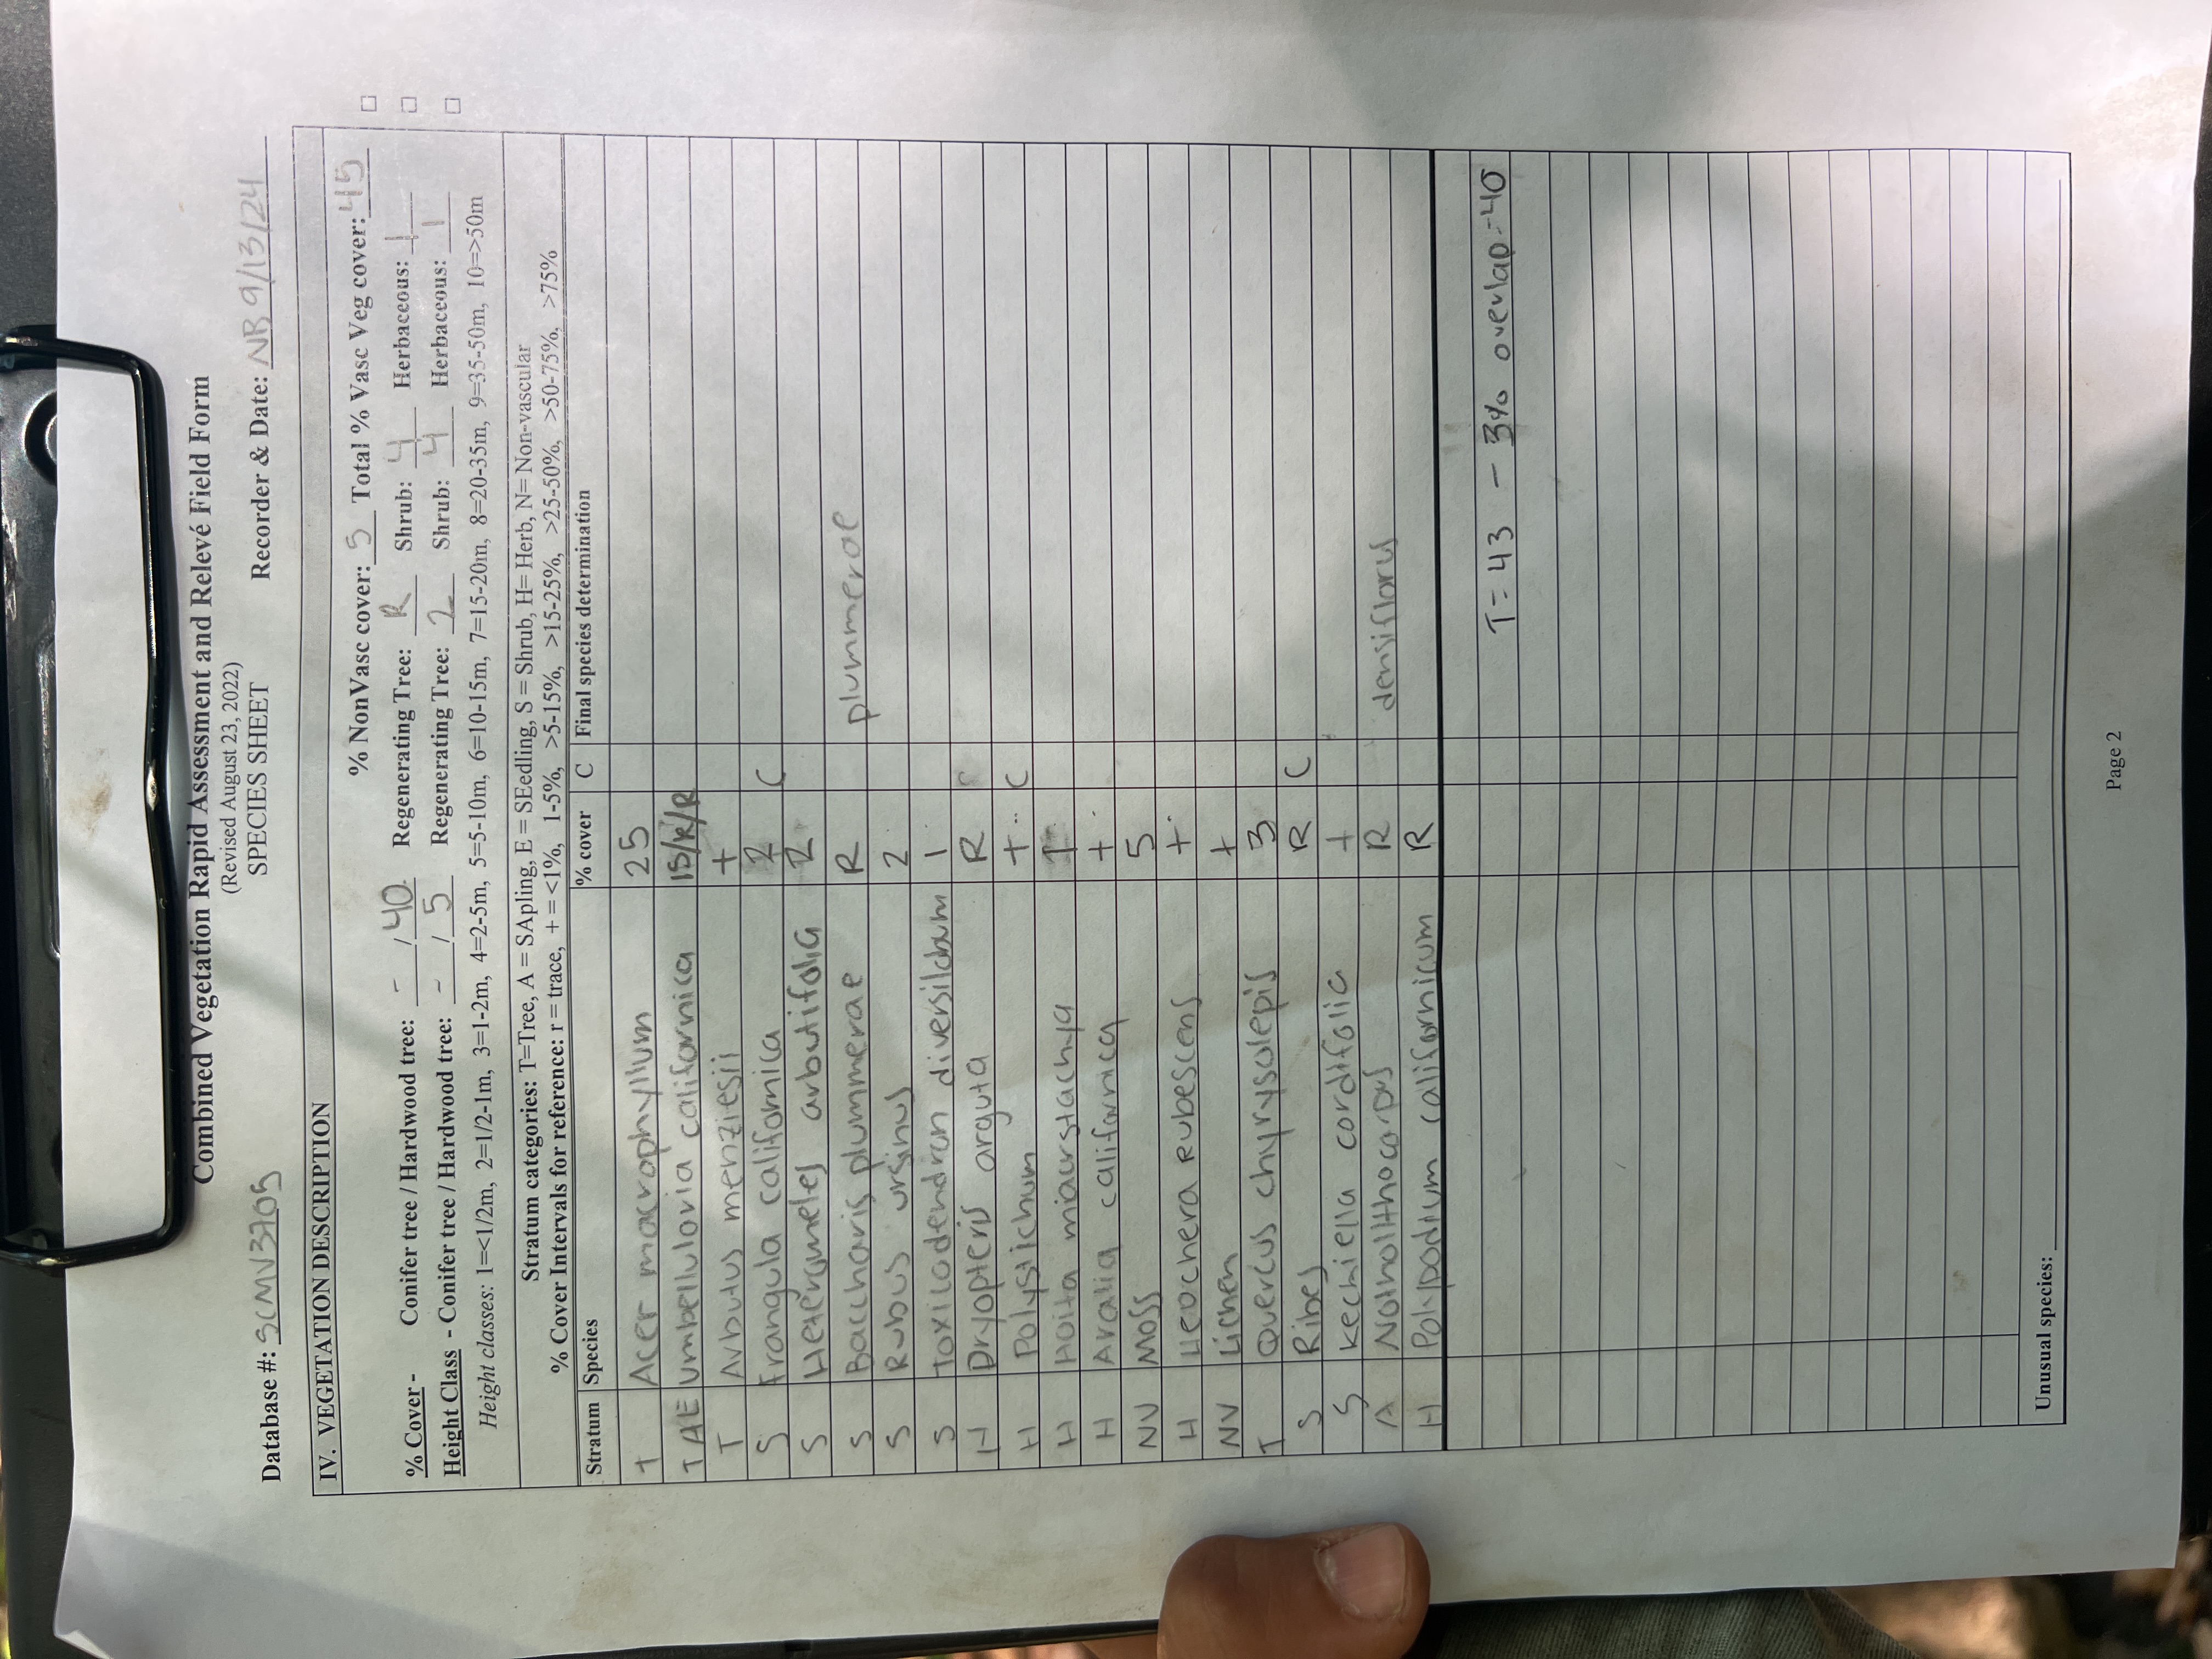 Combined Vegetation Rapid Assessment and Relevé Field Form
(Revised August 23, 2022)
SPECIES SHEET
Database #: SCMV3705 Recorder & Date: NB 9/13/24
IV. VEGETATION DESCRIPTION
% NonVasc cover: 5 Total % Vasc Veg cover: 45 □
% Cover - Conifer tree / Hardwood tree: - / 40 Regenerating Tree: R Shrub: 4 Herbaceous: 1 □
Height Class - Conifer tree / Hardwood tree: - / 5 Regenerating Tree: 2 Shrub: 4 Herbaceous: 1 □
Height classes: 1=<1/2m, 2=1/2-1m, 3=1-2m, 4=2-5m, 5=5-10m, 6=10-15m, 7=15-20m, 8=20-35m, 9=35-50m, 10=>50m
Stratum categories: T=Tree, A = SApling, E = SEedling, S = Shrub, H= Herb, N= Non-vascular
% Cover Intervals for reference: r = trace, + = <1%, 1-5%, >5-15%, >15-25%, >25-50%, >50-75%, >75%
Stratum Species % cover C Final species determination
T Acer macrophyllum 25
TAE Umbellulovia californica 15/R/R
T Arbutus menziesii +
S Frangula californica 2 C
S Heteromeles arbutifolia 2
S Baccharis plummerae R plummerae
S Rubus ursinus 2
S Toxicodendron diversilobum 1
H Dryopteris arguta R C
H Polystichum + C
H Hoita miacrstachya
H Aralia californica +
NV Moss 5
H Heochera rubescens +
NV Lichen +
T Quercus chyrysolepis 3
S Ribes R C
S Keckiella cordifolia +
A Notholithocarpus R densiflorus
H Polypodium californicum R
T = 43 - 3% overlap = 40
Unusual species:
Page 2